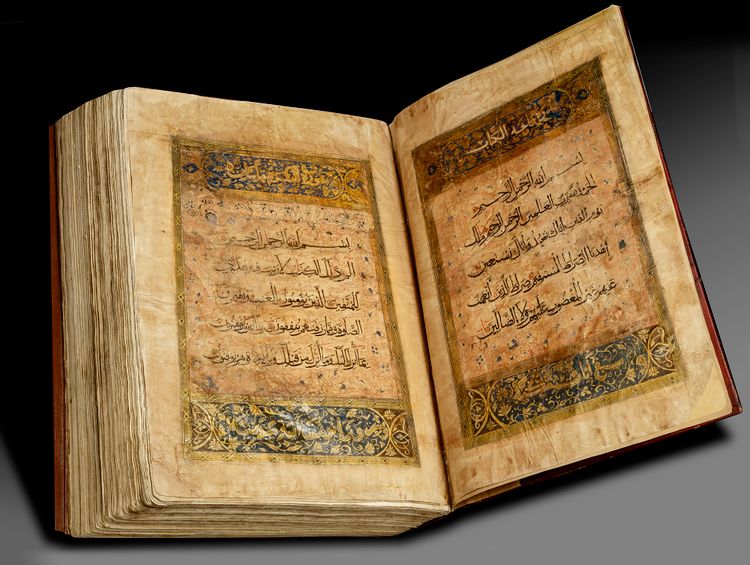 فاتحة الكتاب
بسم الله الرحمن الرحيم
الحمد لله رب العالمين الرحمن الرحيم ملك
يوم الدين اياك نعبد واياك نستعين
اهدنا الصراط المستقيم صراط الذين انعمت
عليهم غير المغضوب عليهم ولا الضالين
سورة البقرة
بسم الله الرحمن الرحيم
الم ذلك الكتاب لا ريب فيه هدى
للمتقين الذين يؤمنون بالغيب ويقيمون
الصلوة ومما رزقنهم ينفقون والذين يؤمنون
بما انزل اليك وما انزل من قبلك وبالاخرة هم يوقنون